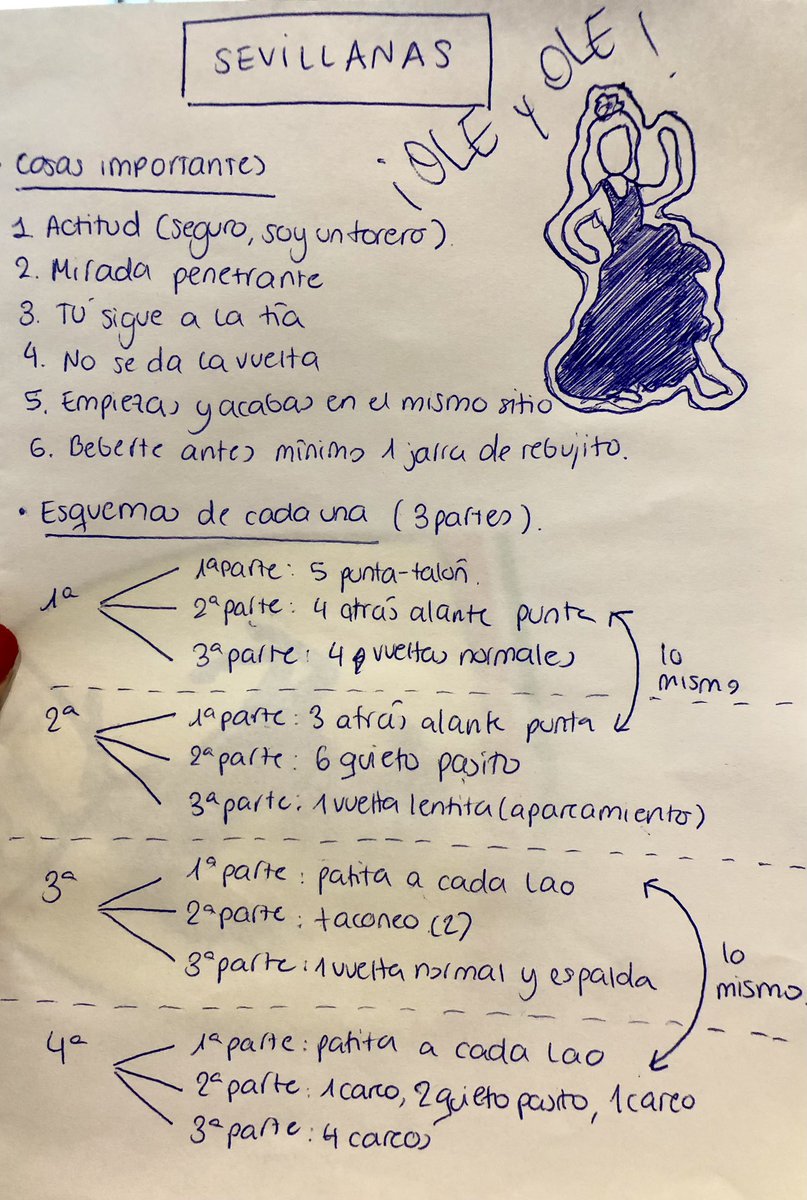 SEVILLANAS
¡OLE Y OLE!
• Cosas importantes
1 Actitud (seguro, soy un torero).
2. Mirada penetrante
3. TÚ sigue a la tía
4. No se da la vuelta
5. Empiezas y acabas en el mismo sitio
6. Beberte antes mínimo 1 jarra de rebujito.
• Esquemas de cada una (3 partes).
1ª
1ª parte: 5 punta-talón.
2ª parte: 4 atrás alante punta
3ª parte: 4 vueltas normales
lo mismo
2ª
1ª parte: 3 atrás alante punta
2ª parte: 6 quieto pasito
3ª parte: 1 vuelta lentita (aparcamiento)
3ª
1ª parte: patita a cada lao
2ª parte: taconeo (2)
3ª parte: 1 vuelta normal y espalda
lo mismo.
4ª
1ª parte: patita a cada lao
2ª parte: 1 careo, 2 quieto pasito, 1 careo
3ª parte: 4 careos